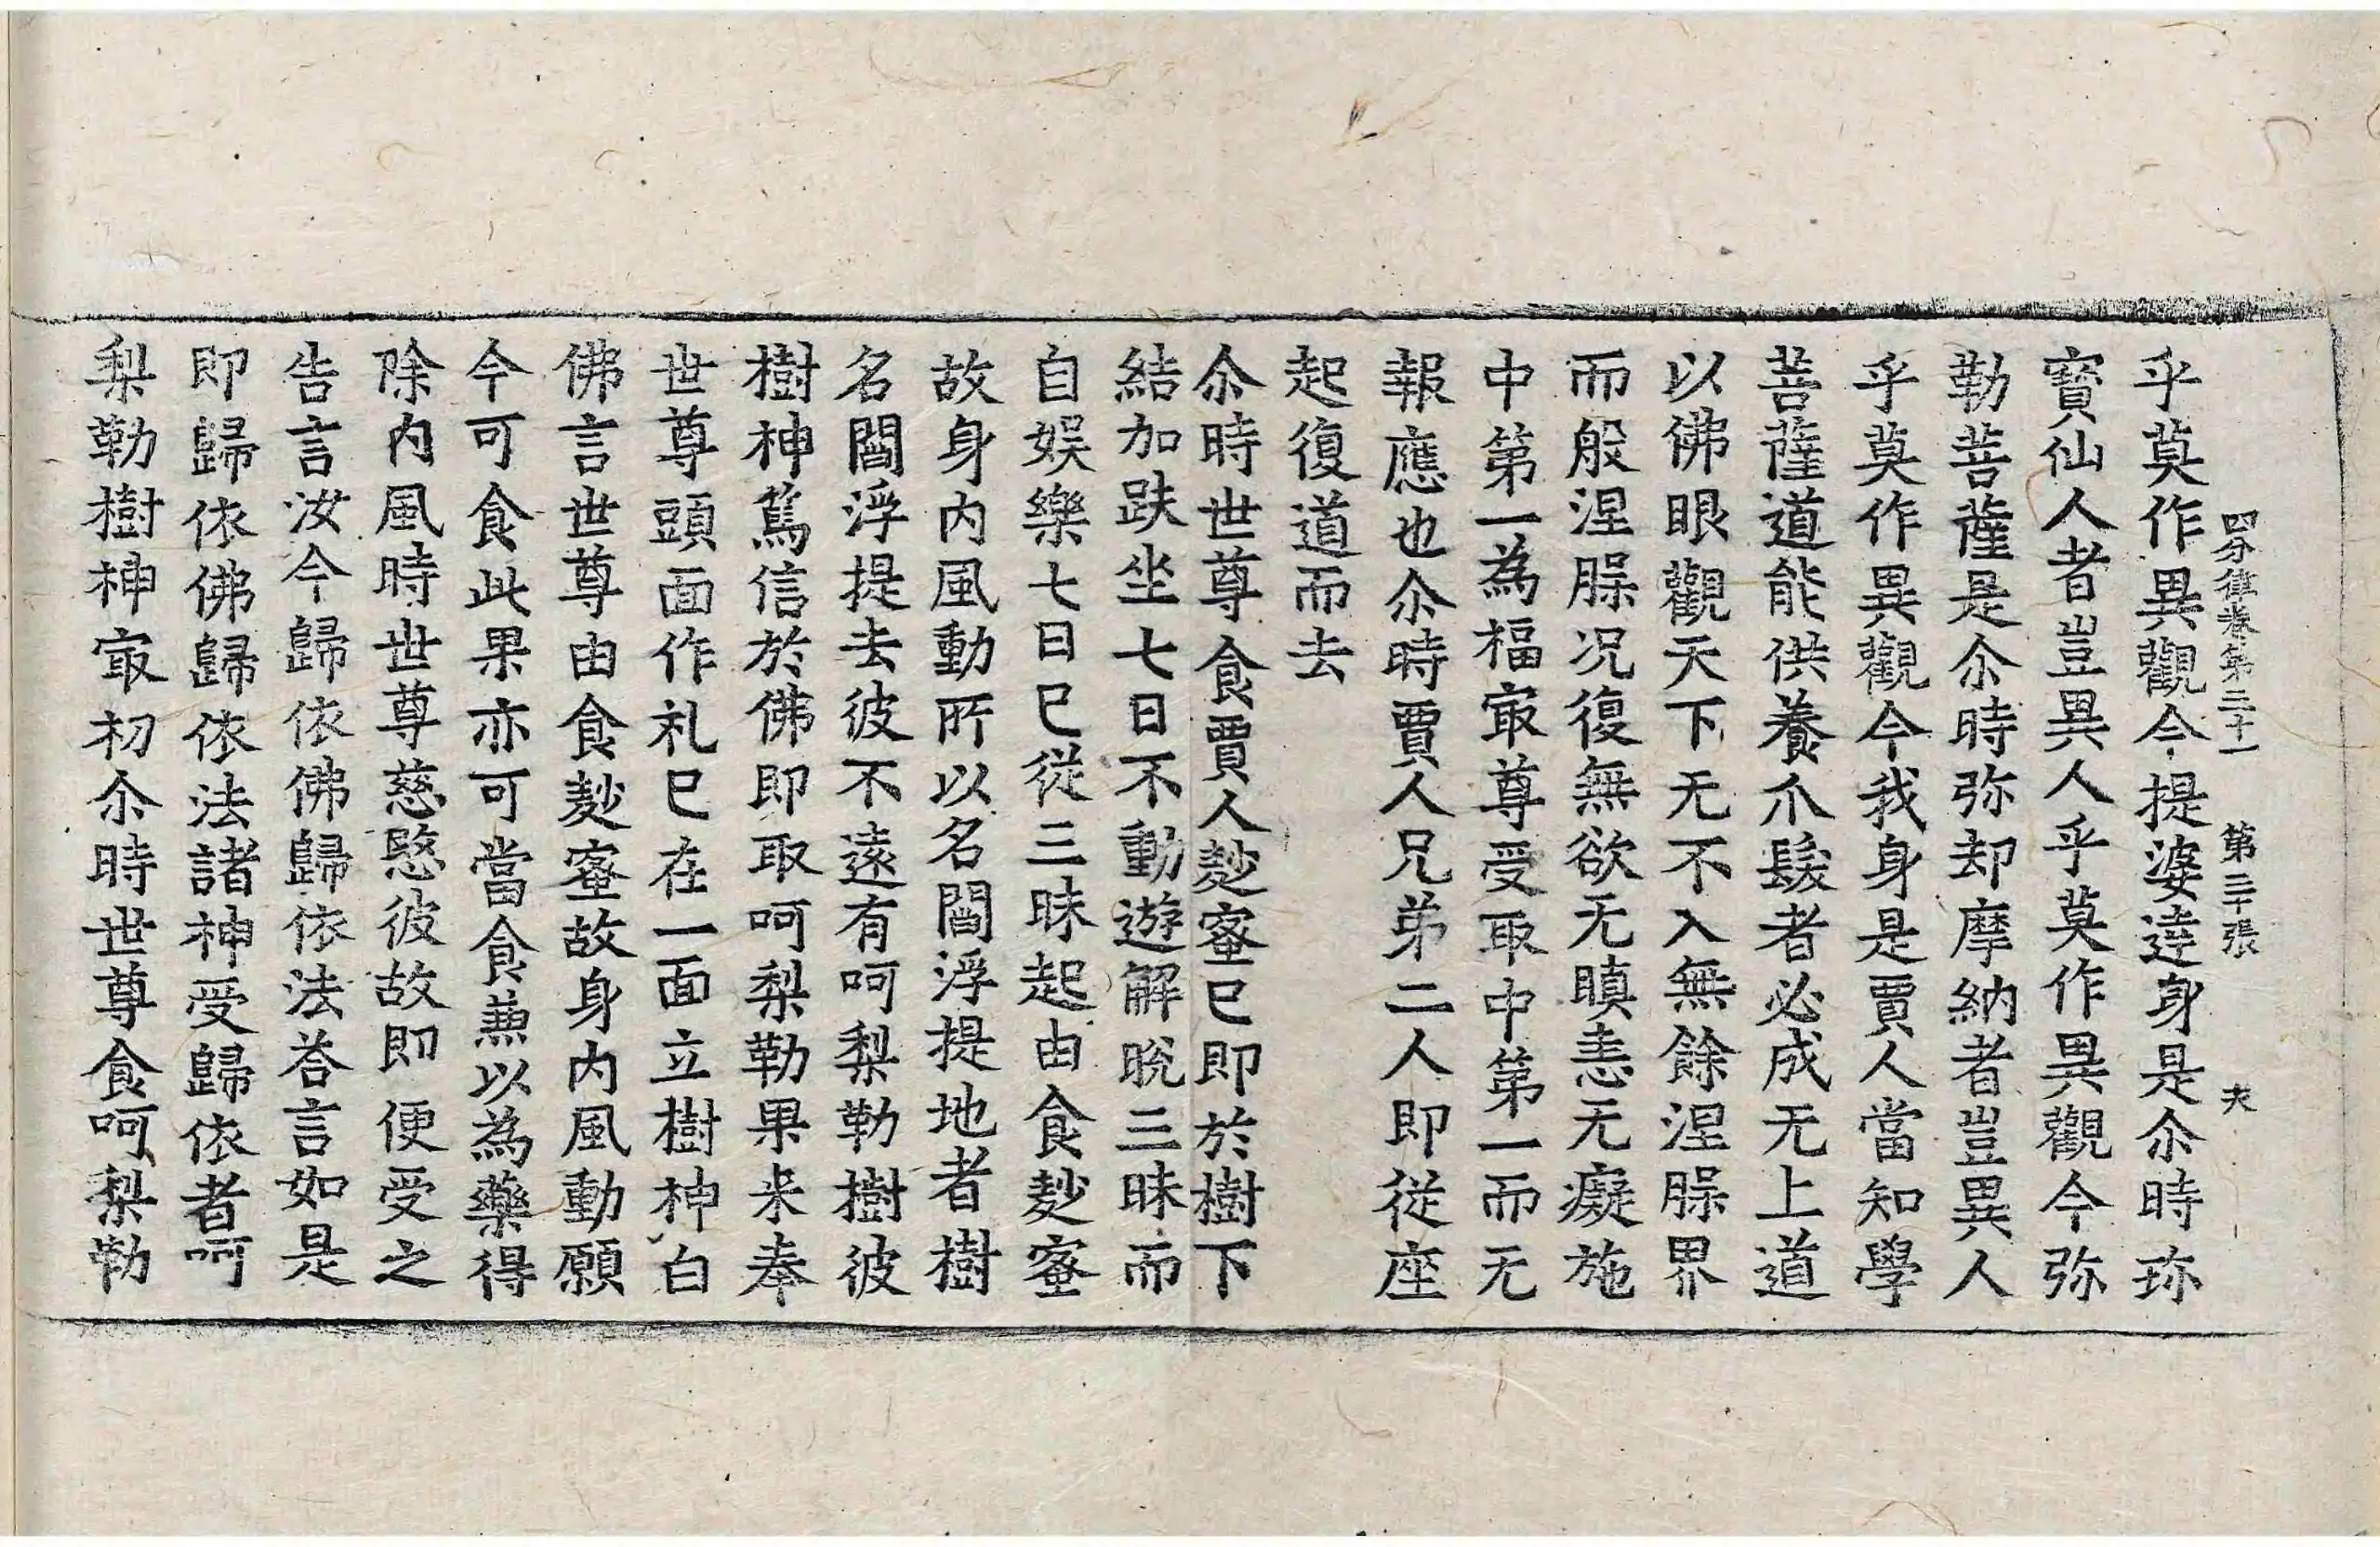 四分律卷第三十一 第三十張 夾
乎莫作異觀今提婆達身是尒時珎
寳仙人者豈異人乎莫作異觀今弥
勒菩薩是尒時弥却摩納者豈異人
乎莫作異觀今我身是賈人當知學
菩薩道能供養爪髮者必成无上道
以佛眼觀天下无不入無餘涅槃界
而般涅槃况復無欲无瞋恚无癡施
中第一為福㝡尊受取中第一而无
報應也尒時賈人兄弟二人即從座
起復道而去
尒時世尊食賈人麨蜜已即於樹下
結加趺坐七日不動遊解脫三昧而
自娱樂七日已從三昧起由食麨蜜
故身内風動所以名閻浮提地者樹
名閻浮提去彼不遠有呵梨勒樹彼
樹神篤信於佛即取呵梨勒果来奉
世尊頭面作礼已在一面立樹神白
佛言世尊由食麨蜜故身内風動願
今可食此果亦可當食兼以為藥得
除内風時世尊慈愍彼故即便受之
告言汝今歸依佛歸依法荅言如是
即歸依佛歸依法諸神受歸依者呵
梨勒樹神㝡初尒時世尊食呵梨勒